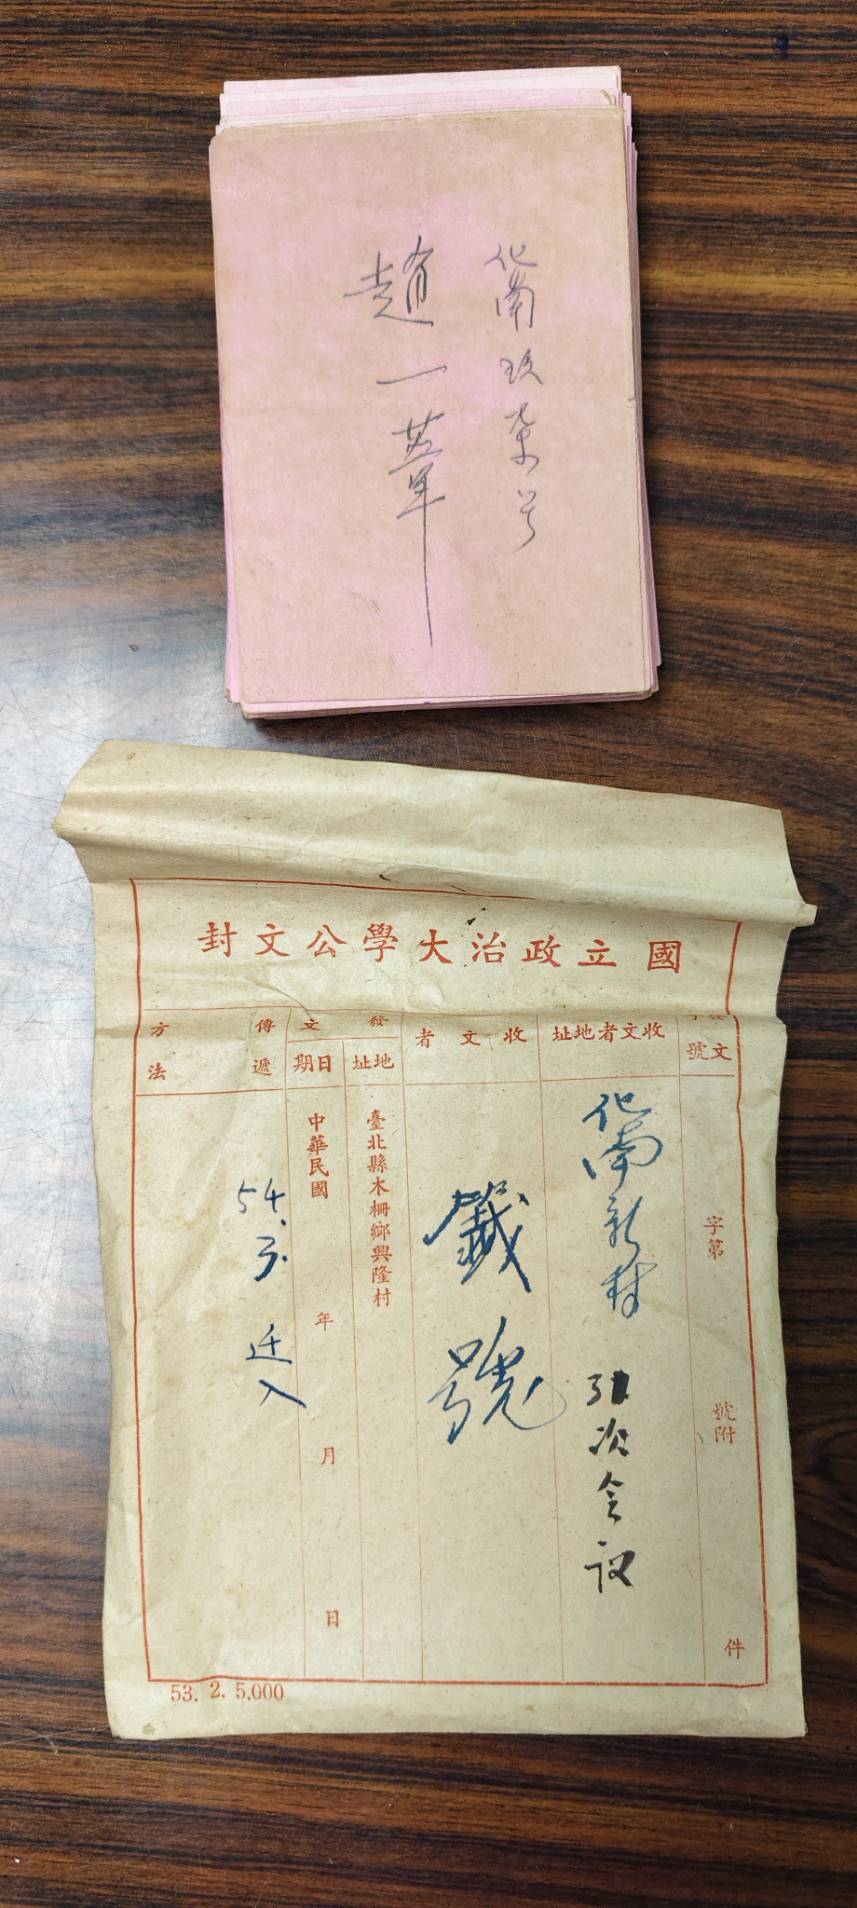 化南玖柒号
趙一葦
國立政治大學公文封
發文字號
收文者地址
收文者
發文
地址
日期
傳遞方法
字第 號附 件
化南新村
次会议
籤號
臺北縣木柵鄉興隆村
中華民國 年 月 日
54.3. 迁入
53. 2. 5,000